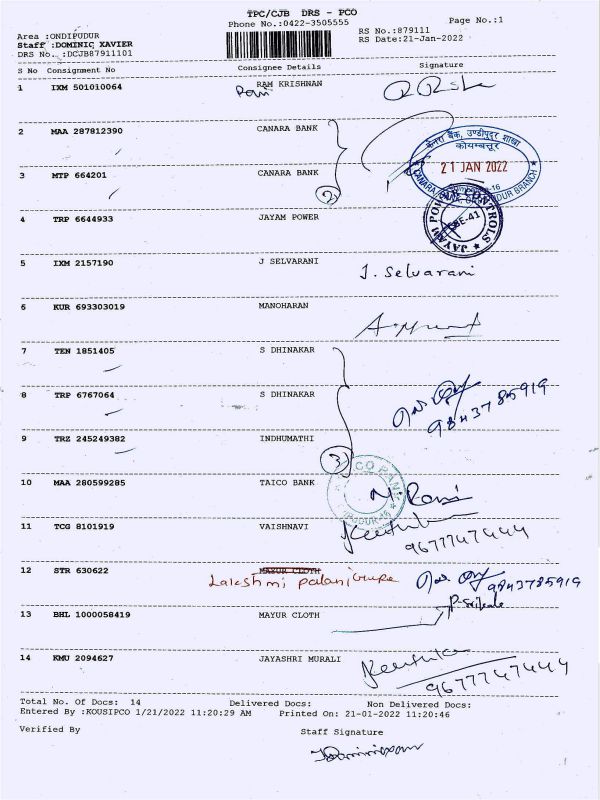 TPC/CJB DRS - PCO
Phone No.:0422-3505555
Page No.:1
Area :ONDIPUDUR
Staff :DOMINIC XAVIER
DRS No. :DCJB87911101
RS No.:879111
RS Date:21-Jan-2022
S No Consignment No Consignee Details Signature
1 IXM 501010064 RAM KRISHNAN
Ram
2 MAA 287812390 CANARA BANK
केनरा बैंक, उण्डीपुदूर शाखा
कोयम्बत्तूर
21 JAN 2022
3 MTP 664201 CANARA BANK
2
4 TRP 6644933 JAYAM POWER
JAYAM POWER CONTROLS
CBE-41
5 IXM 2157190 J SELVARANI
J. Selvarani
6 KUR 693303019 MANOHARAN
7 TEN 1851405 S DHINAKAR
8 TRP 6767064 S DHINAKAR
9843785919
9 TRZ 245249382 INDHUMATHI
3
10 MAA 280599285 TAICO BANK
N. Rani
11 TCG 8101919 VAISHNAVI
9677747444
12 STR 630622 MAYUR CLOTH
Lakshmi
9843785919
13 BHL 1000058419 MAYUR CLOTH
14 KMU 2094627 JAYASHRI MURALI
9677747444
Total No. Of Docs: 14 Delivered Docs: Non Delivered Docs:
Entered By :KOUSIPCO 1/21/2022 11:20:29 AM Printed On: 21-01-2022 11:20:46
Verified By Staff Signature